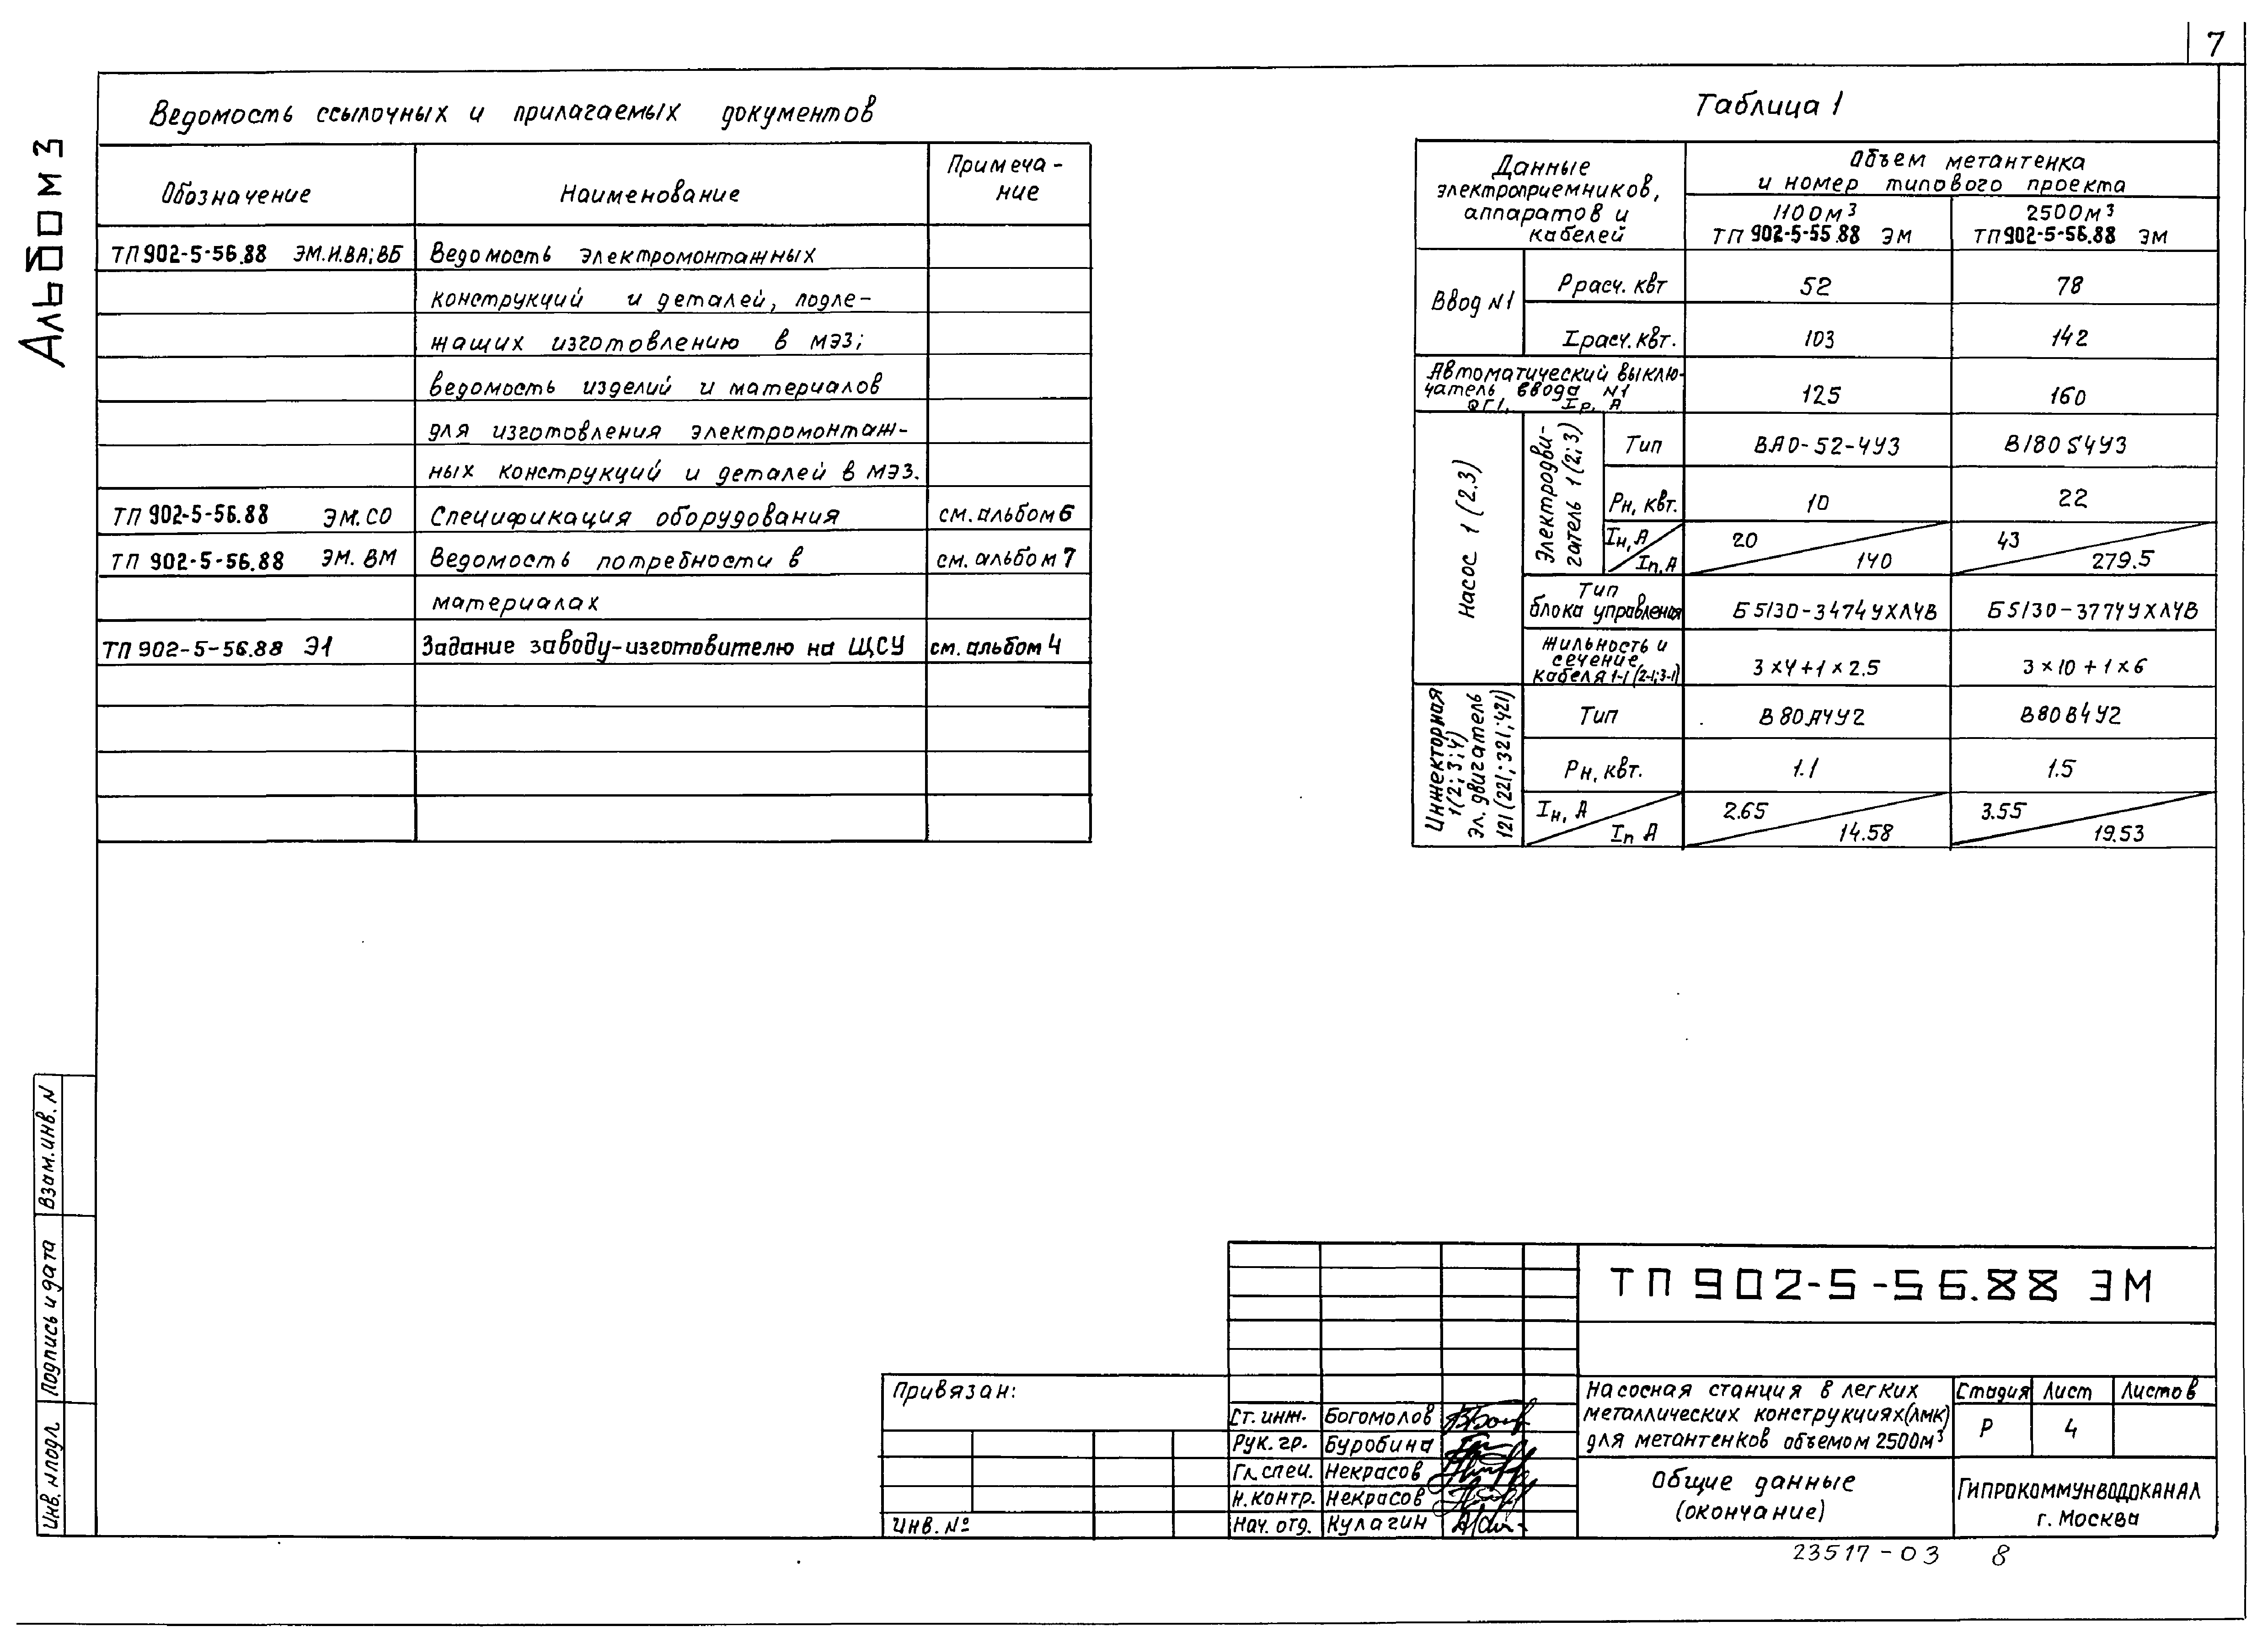 7
Альбом 3
Ведомость ссылочных и прилагаемых документов
Обозначение
Наименование
Примеча-
ние
ТП 902-5-56.88 ЭМ.И.ВА; ВБ
Ведомость электромонтажных
конструкций и деталей, подле-
жащих изготовлению в МЭЗ;
ведомость изделий и материалов
для изготовления электромонтаж-
ных конструкций и деталей в МЭЗ.
ТП 902-5-56.88 ЭМ.СО
Спецификация оборудования
см. альбом 6
ТП 902-5-56.88 ЭМ. ВМ
Ведомость потребности в
см. альбом 7
материалах
ТП 902-5-56.88 Э1
Задание заводу-изготовителю на ЩСУ
см. альбом 4
Таблица 1
Данные
электроприемников,
аппаратов и
кабелей
Объем метантенка
и номер типового проекта
1100м³
ТП 902-5-55.88 ЭМ
2500м³
ТП 902-5-56.88 ЭМ
Ввод №1
Ррасч. квт
52
78
Iрасч. квт.
103
142
Автоматический выклю-
чатель ввода №1
QГ1, Iр, А
125
160
Насос 1 (2.3)
Электродви-
гатель 1(2;3)
Тип
ВАО-52-4У3
В180S4У3
Рн, квт.
10
22
Iн, А
Iп, А
20
140
43
279.5
Тип
блока управления
Б5130-3474УХЛ4В
Б5130-3774УХЛ4В
Жильность и
сечение
кабеля 1-1 (2-1; 3-1)
3×4+1×2.5
3×10+1×6
Инжекторная
1(2;3;4)
Эл. двигатель
121(221;321;421)
Тип
В80А4У2
В80В4У2
Рн, квт.
1.1
1.5
Iн, А
Iп А
2.65
14.58
3.55
19.53
Взам.инв. N
Подпись и дата
Инв. N подл.
Привязан:
Инв. №
Ст. инж. Богомолов
Рук. гр. Буробина
Гл. спец. Некрасов
Н. контр. Некрасов
Нач. отд. Кулагин
ТП 902-5-56.88 ЭМ
Насосная станция в легких
металлических конструкциях(лмк)
для метантенков объемом 2500м³
Стадия Лист Листов
Р 4
Общие данные
(окончание)
Гипрокоммунводоканал
г. Москва
23517-03 8